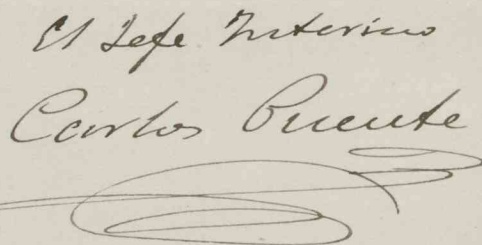 El Jefe Interino
Carlos Puente